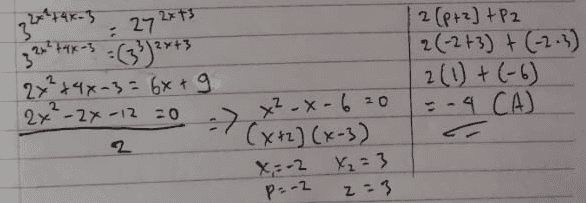 3^(2x²+4x-3) = 27^(2x+3)
3^(2x²+4x-3) = (3³)^(2x+3)
2x²+4x-3 = 6x + 9
2x²-2x-12 = 0
2
=> x²-x-6 = 0
(x+2)(x-3)
x₁=-2 x₂=3
P=-2 z=3
2(p+z)+pz
2(-2+3) + (-2.3)
2(1) + (-6)
= -4 (A)